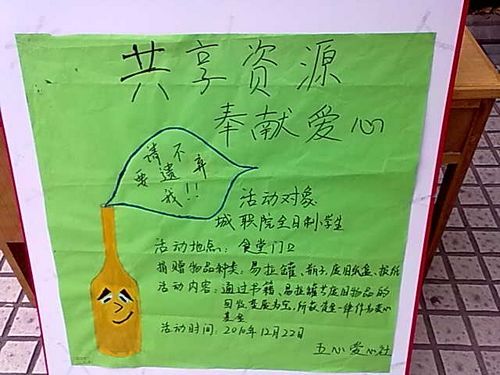 共享资源
奉献爱心
请不要遗弃我!!
活动对象:
城职院全日制学生
活动地点: 食堂门口
捐赠物品种类: 易拉罐、瓶子、废旧纸盒、报纸
活动内容: 通过书籍、易拉罐等废旧物品的
回收变废为宝, 所获资金一律作为爱心
基金
活动时间: 2010年12月22日
五心爱心社